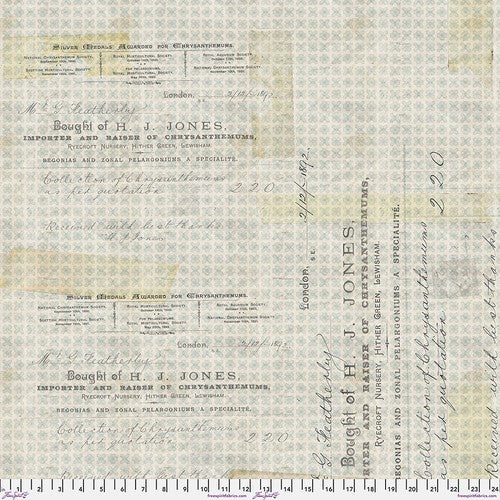 Silver Medals Awarded for Chrysanthemums.
National Chrysanthemum Society,
Royal Horticultural Society,
Royal Aquarium Society,
Scottish Horticultural Society,
For Pelargoniums,
Royal Horticultural Society,
National Chrysanthemum Society,
London, 2/12/-1892.
Mr G Featherley
Bought of H. J. JONES,
IMPORTER AND RAISER OF CHRYSANTHEMUMS,
Ryecroft Nursery, Hither Green, Lewisham
BEGONIAS AND ZONAL PELARGONIUMS A SPECIALITÉ.
Collection of Chrysanthemums
as per quotation 2 2 0
Received with best thanks
H. J. Jones
Silver Medals Awarded for Chrysanthemums.
London,
Mr G Featherley
Bought of H. J. JONES,
IMPORTER AND RAISER OF CHRYSANTHEMUMS,
Ryecroft Nursery, Hither Green, Lewisham
BEGONIAS AND ZONAL PELARGONIUMS A SPECIALITÉ.
Collection of Chrysanthemums
as per quotation 2 2 0
London, S.E. 2/12/-1892.
G Featherley
Bought of H. J. JONES,
IMPORTER AND RAISER OF CHRYSANTHEMUMS,
Ryecroft Nursery, Hither Green, Lewisham
BEGONIAS AND ZONAL PELARGONIUMS A SPECIALITÉ.
Collection of Chrysanthemums
as per quotation 2 2 0
Received with best thanks
1 2 3 4 5 6 7 8 9 10 11 12 13 14 15 16 17 18 19 20 21 22 23 24
FreeSpirit www.freespiritfabrics.com FreeSpirit www.freespiritfabrics.com